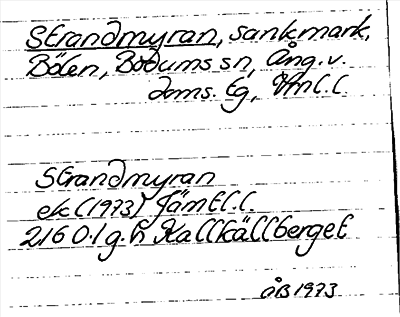 Strandmyran, sankmark,
Bölen, Bodums sn, Ång.v.
doms. tg, Vml.l.
Strandmyran
ek (1973) Jämtl.l.
216 0.1 g.h Kallkällberget
ÅB 1973